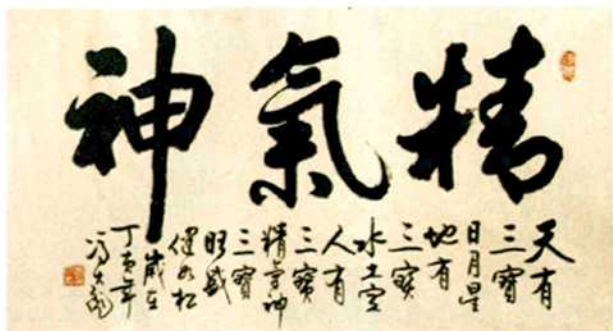 精氣神
天有
三寶
日月星
地有
三寶
水土空
人有
三寶
精氣神
三寶
旺盛
健如松
歲在
丁亥年
冯大彪